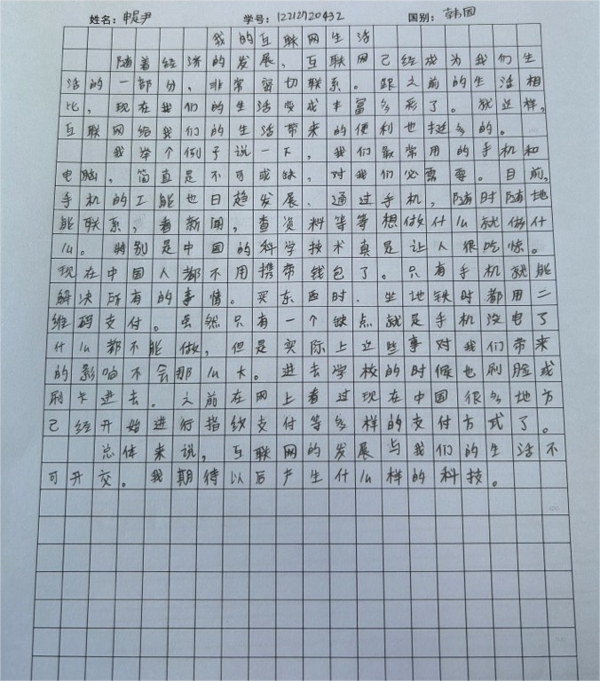 姓名:申尾尹 学号:12212720432 国别:韩国
我的互联网生活
随着经济的发展,互联网已经成为我们生
活的一部分,非常密切联系。跟之前的生活相
比,现在我们的生活变成丰富多彩了。就这样,
互联网给我们的生活带来的便利也挺多的。
我举个例子说一下,我们最常用的手机和
电脑,简直是不可或缺,对我们必需要。目前,
手机的工能也日趋发展,通过手机,随时随地
能联系,看新闻,查资料等等想做什么就做什
么。特别是中国的科学技术真是让人很吃惊。
现在中国人都不用携带钱包了。只有手机就能
解决所有的事情。买东西时,坐地铁时都用二
维码支付。虽然只有一个缺点就是手机没电了
什么都不能做,但是实际上这些事对我们带来
的影响不会那么大。进去学校的时候也刷脸或
刷卡进去。之前在网上看过现在中国很多地方
已经开始进行指纹支付等多样的支付方式了。
总体来说,互联网的发展与我们的生活不
可开交。我期待以后产生什么样的科技。